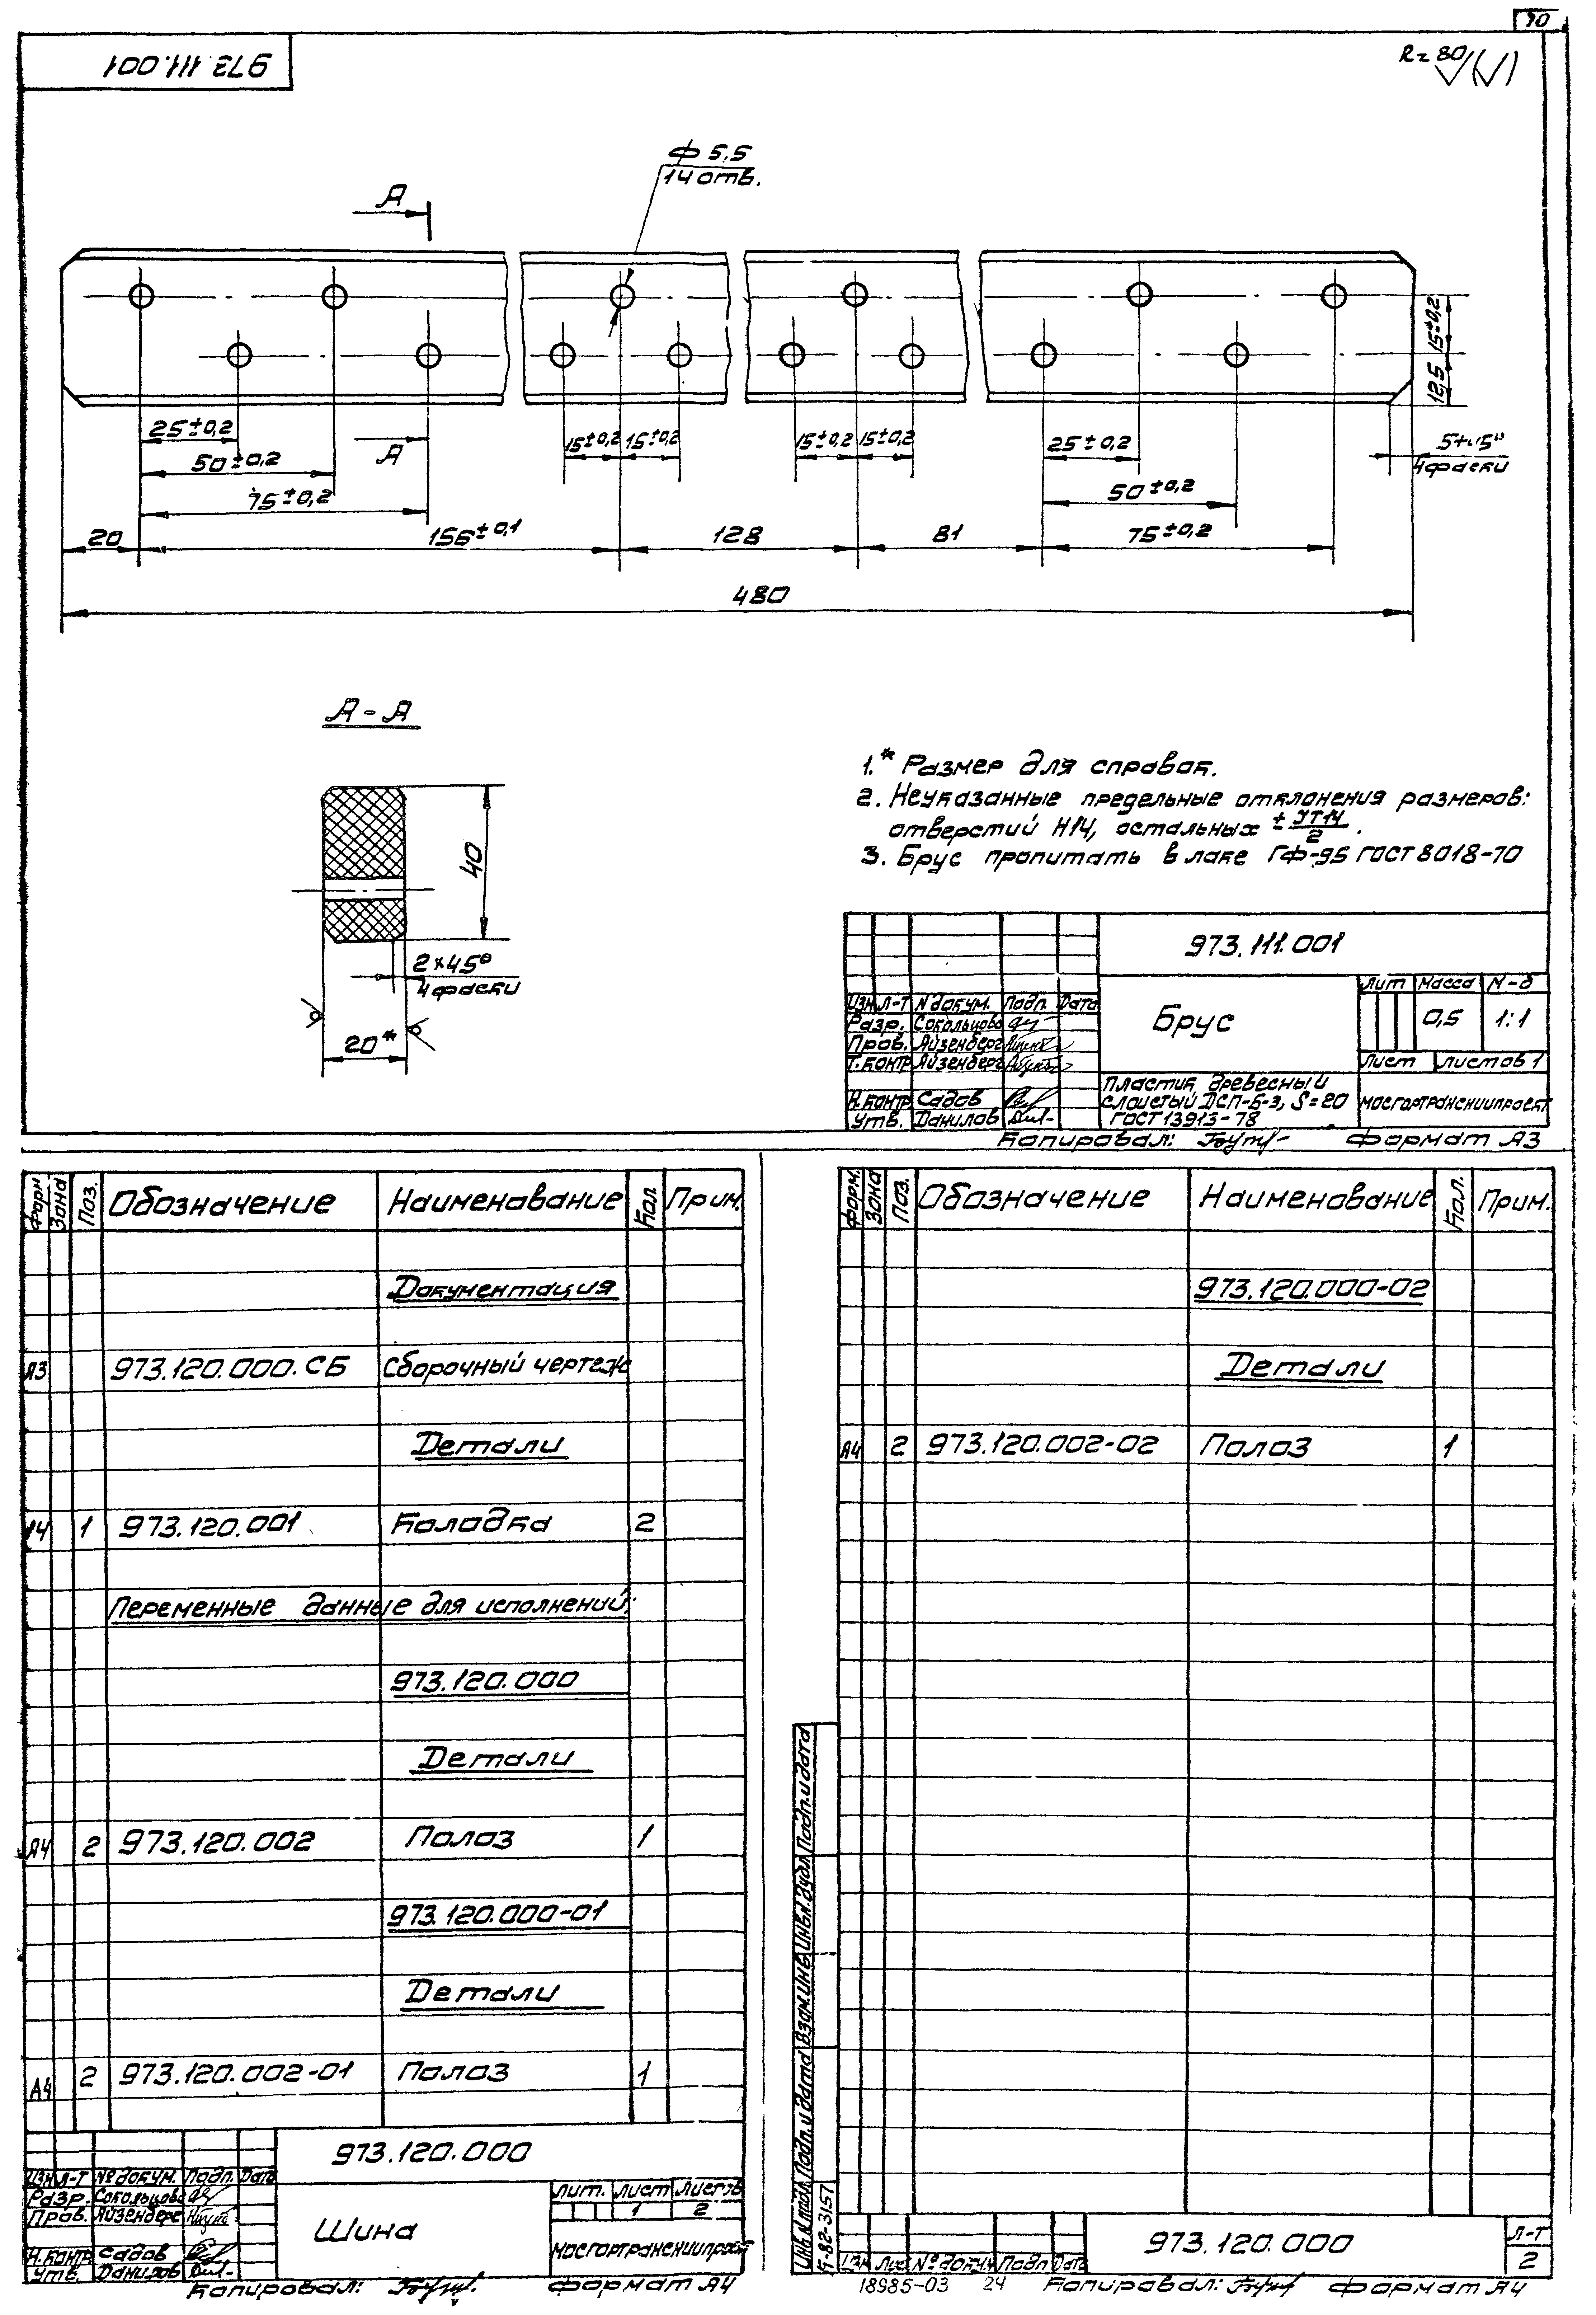 40
973.111.001
Rz 80
ф 5,5
14 отв.
А
25±0,2
50±0,2
75±0,2
А
15±0,2 15±0,2
15±0,2 15±0,2
25±0,2
50±0,2
15±0,2
12,5
4 фаски
20
156±0,1
128
81
75±0,2
480
А-А
40
2×45°
4 фаски
20*
1.* Размер для справок.
2. Неуказанные предельные отклонения размеров:
отверстий Н14, остальных ± JT14/2.
3. Брус пропитать в лаке ГФ-95 ГОСТ 8018-70
973.111.001
Изм Л-т N докум. Подп. Дата
Разр. Сокольцова
Пров. Айзенберг
Т.контр Айзенберг
Н.контр Садов
Утв. Данилов
Брус
Лит Масса М-б
0,5 1:1
Лист Листов 1
Пластик древесный
слоистый ДСП-Б-3, S=20
ГОСТ 13913-78
Мосгортрансниипроект
Копировал: Формат А3
Форм Зона Поз. Обозначение Наименование Кол Прим.
Документация
А3 973.120.000.СБ Сборочный чертеж
Детали
А4 1 973.120.001 Колодка 2
Переменные данные для исполнений:
973.120.000
Детали
А4 2 973.120.002 Полоз 1
973.120.000-01
Детали
А4 2 973.120.002-01 Полоз 1
973.120.000
Изм Л-т № докум. Подп. Дата
Разр. Сокольцова
Пров. Айзенберг
Н.контр Садов
Утв. Данилов
Шина
Лит. Лист Листов
1 2
Мосгортрансниипроект
Копировал: Формат А4
Форм. Зона Поз. Обозначение Наименование Кол. Прим.
973.120.000-02
Детали
А4 2 973.120.002-02 Полоз 1
Инв.N подл. Подп. и дата Взам.инв. Инв.N дубл Подп. и дата
Б-82-3157
Изм Лист № докум Подп Дата
973.120.000
Л-т
2
18985-03 24 Копировал: Формат А4